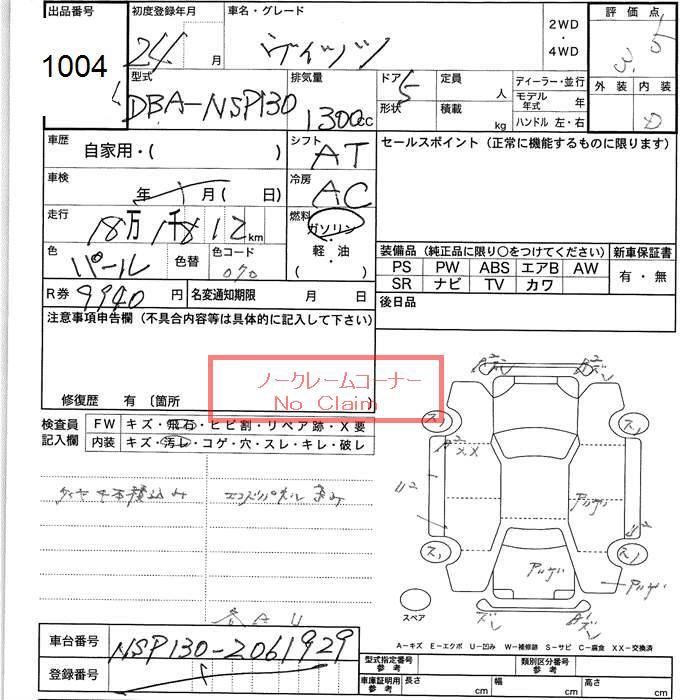 出品番号 初度登録年月 車名・グレード 2WD・4WD 評価点
1004 24 月 ヴィッツ 3.5
型式 排気量 ドア 5 定員 人 ディーラー・並行 外装 内装
DBA-NSP130 1300cc 形状 積載 kg モデル年式 年 D
ハンドル 左・右
車歴 自家用・( ) シフト AT セールスポイント(正常に機能するものに限ります)
車検 年 月( 日) 冷房 AC
走行 18万1千812km 燃料 ガソリン・軽・油 ( )
色 パール 色替 色コード 070
装備品(純正品に限り○をつけてください) 新車保証書
PS PW ABS エアB AW 有・無
SR ナビ TV カワ
R券 9940 円 名変通知期限 月 日 後日品
注意事項申告欄(不具合内容等は具体的に記入して下さい)
ノークレームコーナー
No Claim
修復歴 有 〔箇所
検査員記入欄 FW キズ・飛石・ヒビ割・リペア跡・X要
内装 キズ・汚レ・コゲ・穴・スレ・キレ・破レ
スペア
A-キズ E-エクボ U-凹み W-補修跡 S-サビ C-腐食 XX-交換済
車台番号 NSP130-2061929
登録番号
型式指定番号 参考 類別区分番号 参考
車庫証明用 参考 長さ cm 幅 cm 高さ cm